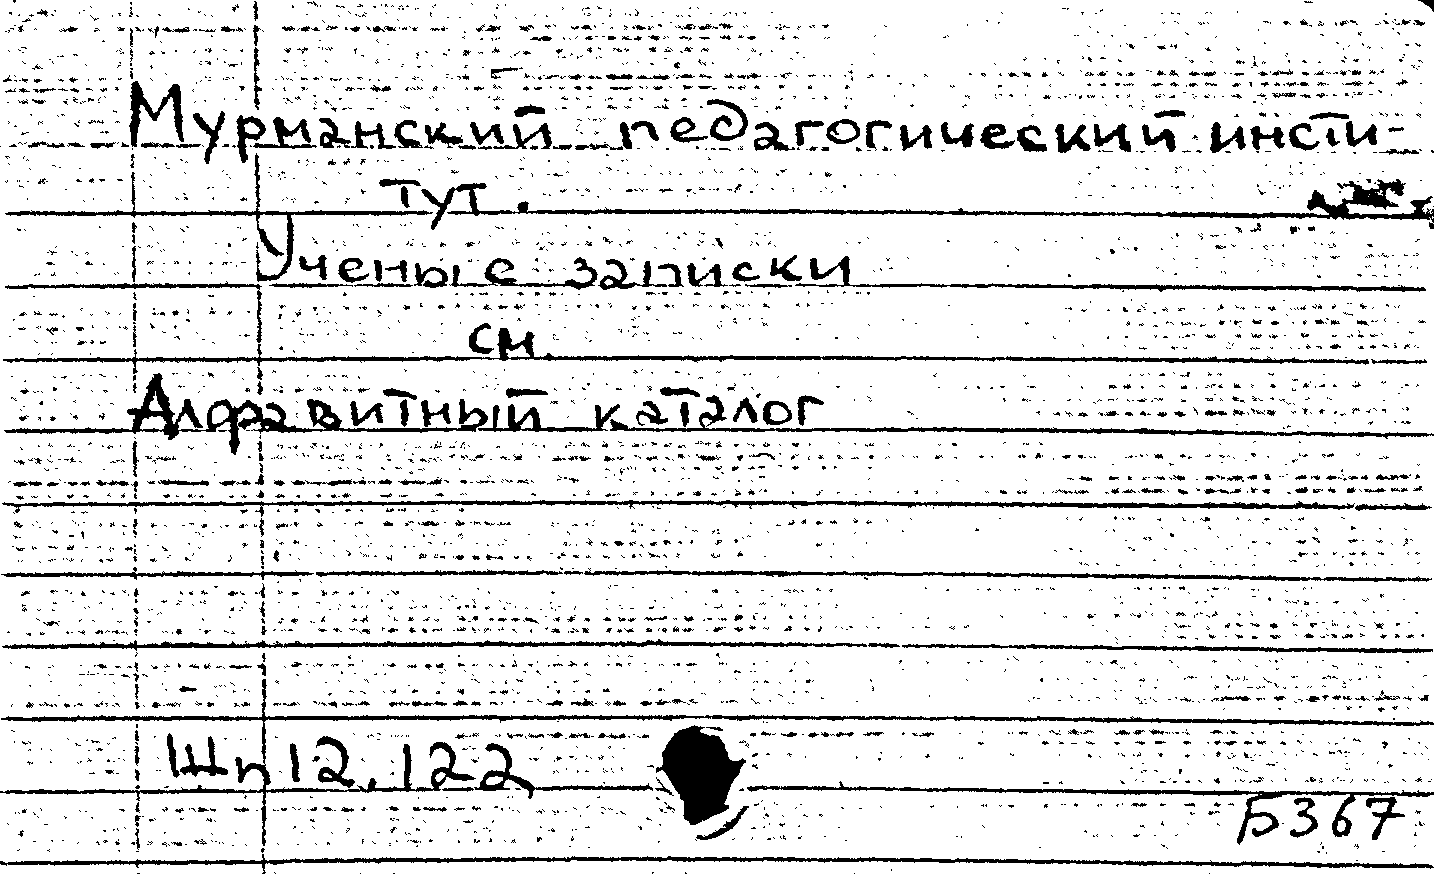 Мурманский педагогический инсти-
тут.
Ученые записки
см.
Алфавитный каталог
Шп 12.122
Б367